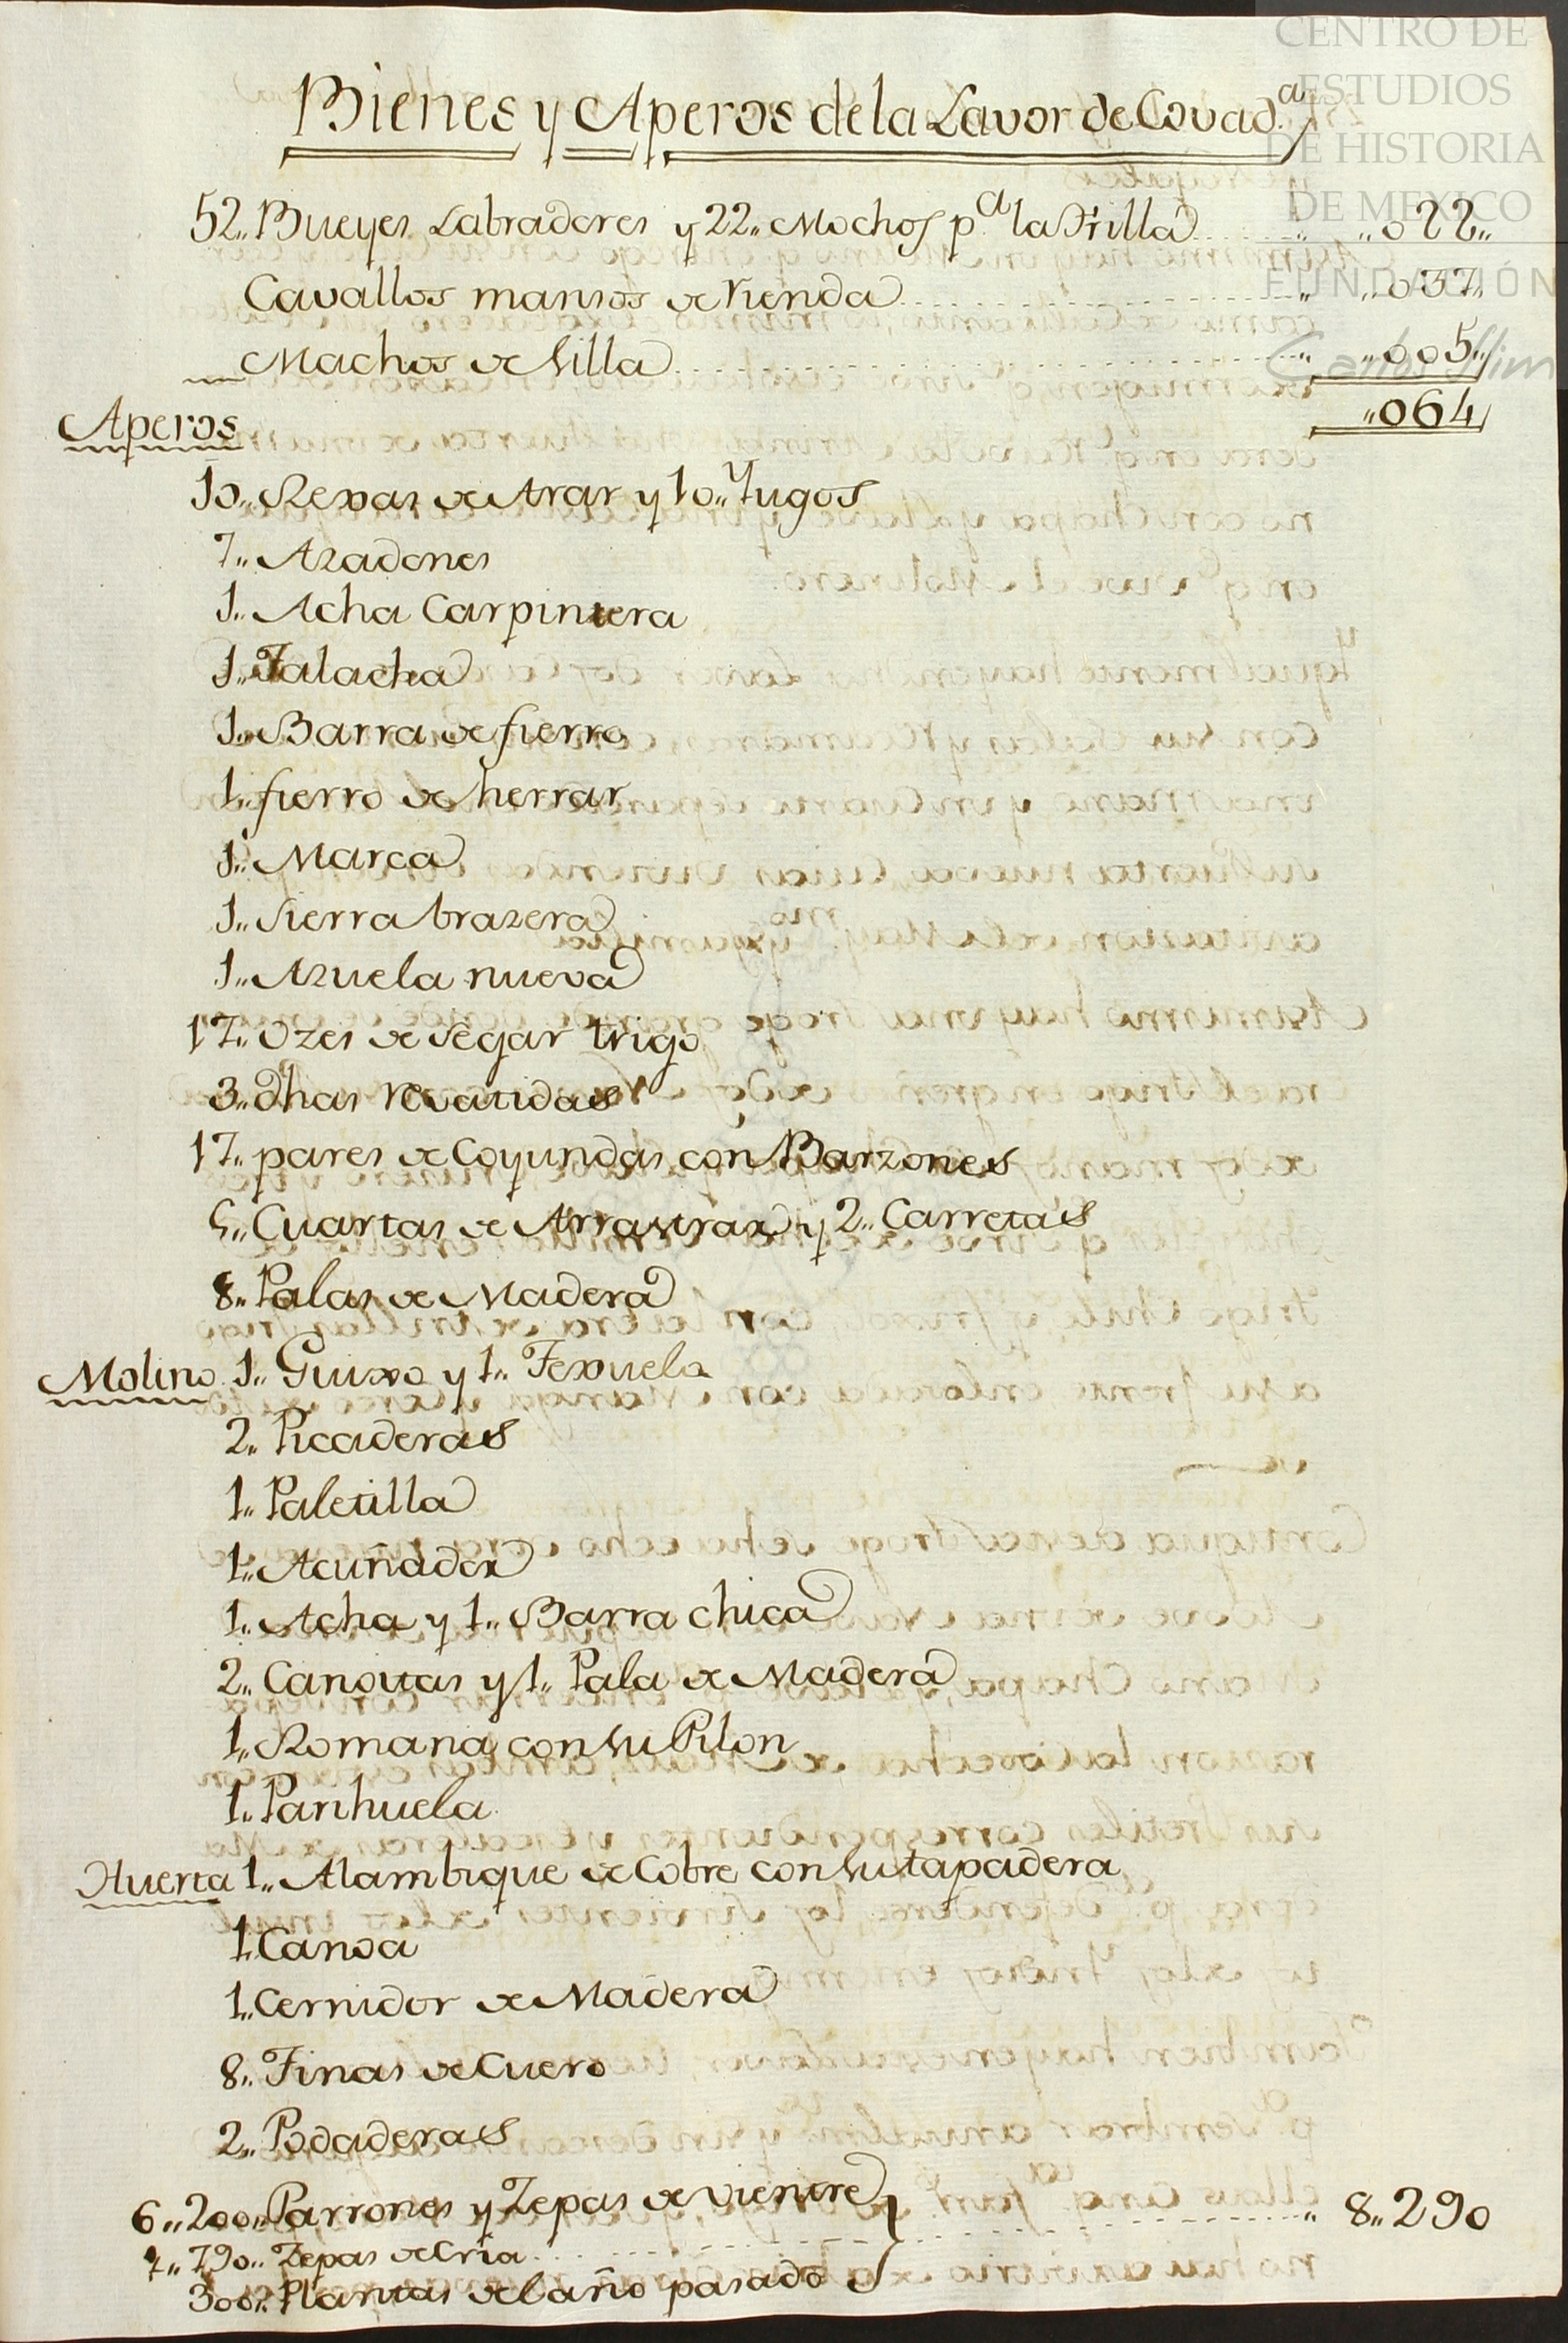 CENTRO DE
ESTUDIOS
DE HISTORIA
DE MEXICO
FUNDACIÓN
Carlos Slim
Bienes y Aperos de la Lavor de Covad.ª
52,, Bueyes Labradores y 22,, Mochos p.ª la Trilla ,, ,,022,,
Cavallos mansos de rienda ,, ,,037,,
Machos de Silla ,, ,,005,,
,,064
Aperos
10,, Rexas de Arar y 10,, Yugos
7,, Azadones
1,, Acha Carpintera
1,, Talacha
1,, Barra de fierro
1,, fierro de herrar
1,, Marca
1,, Sierra brazera
1,, Azuela nueva
17,, Ozes de Segar trigo
3,, dhas Revatidas
17,, pares de Coyundas con Barzones
5,, Cuartas de Arrastrar y 2,, Carretas
8,, Palas de Madera
Molino 1,, Guixo y 1,, Texuela
2,, Picaderas
1,, Paletilla
1,, Acuñador
1,, Acha y 1,, Barra chica
2,, Canoitas y 1,, Pala de Madera
1,, Romana con su Pilon
1,, Parihuela
Huerta 1,, Alambique de Cobre con su tapadera
1,, Canoa
1,, Cernidor de Madera
8,, Tinas de Cuero
2,, Podaderas
6,,200,, Parrones y Zepas de vientre
1,,790,, Zepas de Cria ,, 8,,290
300,, Plantas del año pasado